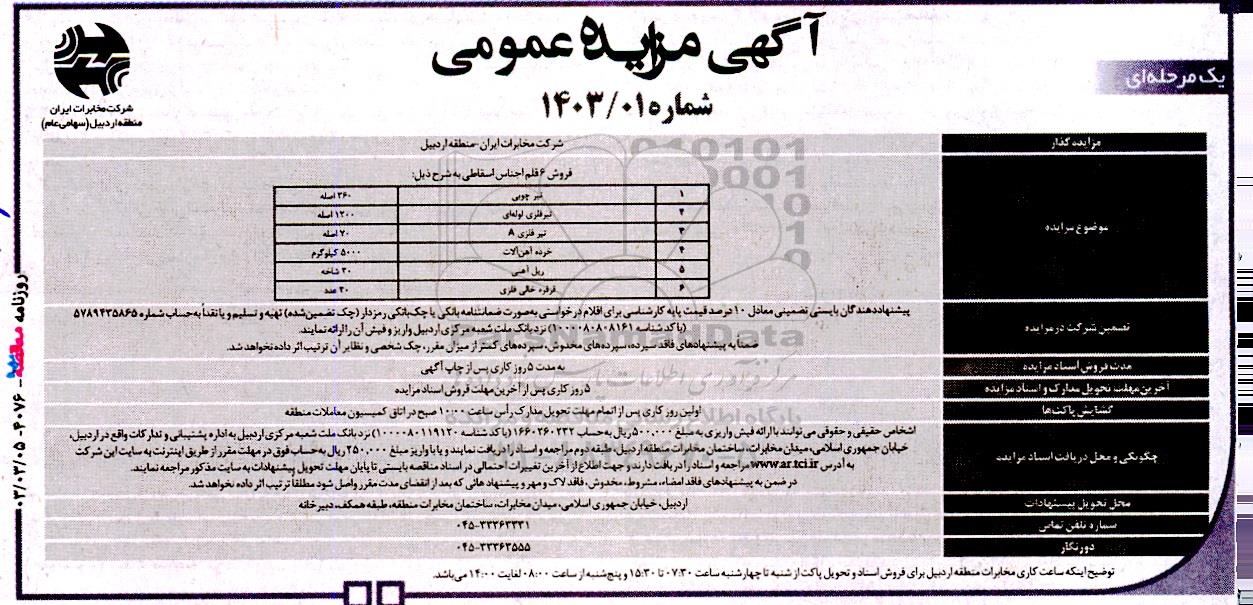 آگهی مزایده عمومی
شماره ۱۴۰۳/۰۱
یک مرحله‌ای
شرکت مخابرات ایران
منطقه اردبیل (سهامی عام)
مزایده گذار
شرکت مخابرات ایران-منطقه اردبیل
موضوع مزایده
فروش ۶ قلم اجناس اسقاطی به شرح ذیل:
۱ تیر چوبی ۳۶۰ اصله
۲ تیر فلزی لوله‌ای ۱۲۰۰ اصله
۳ تیر فلزی A ۷۰ اصله
۴ خرده آهن‌آلات ۵۰۰۰ کیلوگرم
۵ ریل آهنی ۳۰ شاخه
۶ قرقره خالی فلزی ۳۰ عدد
تضمین شرکت در مزایده
پیشنهاددهندگان بایستی تضمینی معادل ۱۰ درصد قیمت پایه کارشناسی برای اقلام درخواستی به‌صورت ضمانتنامه بانکی یا چک‌بانکی رمزدار (چک تضمین‌شده) تهیه و تسلیم و یا نقداً به‌حساب شماره ۵۷۸۹۴۳۵۸۶۵
(با کد شناسه ۱۰۰۰۰۸۰۸۰۸۱۶۱) نزد بانک ملت شعبه مرکزی اردبیل واریز و فیش آن را ارائه نمایند.
ضمناً به پیشنهادهای فاقد سپرده، سپرده‌های مخدوش، سپرده‌های کمتر از میزان مقرر، چک شخصی و نظایر آن ترتیب اثر داده نخواهد شد.
مدت فروش اسناد مزایده
به مدت ۵ روز کاری پس از چاپ آگهی
آخرین مهلت تحویل مدارک و اسناد مزایده
۵ روز کاری پس از آخرین مهلت فروش اسناد مزایده
گشایش پاکت‌ها
اولین روز کاری پس از اتمام مهلت تحویل مدارک رأس ساعت ۱۰:۰۰ صبح در اتاق کمیسیون معاملات منطقه
چگونگی و محل دریافت اسناد مزایده
اشخاص حقیقی و حقوقی می‌توانند با ارائه فیش واریزی به مبلغ ۵۰۰,۰۰۰ ریال به حساب ۱۶۶۰۲۶۰۲۳۲ (با کد شناسه ۱۰۰۰۰۸۰۱۱۹۱۲۰) نزد بانک ملت شعبه مرکزی اردبیل به اداره پشتیبانی و تدارکات واقع در اردبیل،
خیابان جمهوری اسلامی، میدان مخابرات، ساختمان مخابرات منطقه اردبیل، طبقه دوم مراجعه و اسناد را دریافت نمایند و یا با واریز مبلغ ۲۵۰,۰۰۰ ریال به حساب فوق در مهلت مقرر از طریق اینترنت به سایت این شرکت
به آدرس www.ar.tci.ir مراجعه و اسناد را دریافت دارند و جهت اطلاع از آخرین تغییرات احتمالی در اسناد مناقصه بایستی تا پایان مهلت تحویل پیشنهادات به سایت مذکور مراجعه نمایند.
در ضمن به پیشنهادهای فاقد امضاء، مشروط، مخدوش، فاقد لاک و مهر و پیشنهادهائی که بعد از انقضای مدت مقرر واصل شود مطلقاً ترتیب اثر داده نخواهد شد.
محل تحویل پیشنهادات
اردبیل، خیابان جمهوری اسلامی، میدان مخابرات، ساختمان مخابرات منطقه، طبقه همکف، دبیرخانه
شماره تلفن تماس
۰۴۵-۳۳۲۶۳۳۳۱
دورنگار
۰۴۵-۳۳۳۶۳۵۵۵
توضیح اینکه ساعت کاری مخابرات منطقه اردبیل برای فروش اسناد و تحویل پاکت از شنبه تا چهارشنبه ساعت ۰۷:۳۰ تا ۱۵:۳۰ و پنج‌شنبه از ساعت ۰۸:۰۰ لغایت ۱۴:۰۰ می‌باشد.
روزنامه مناقصه - ۴۰۷۶ - ۰۳/۰۳/۰۵